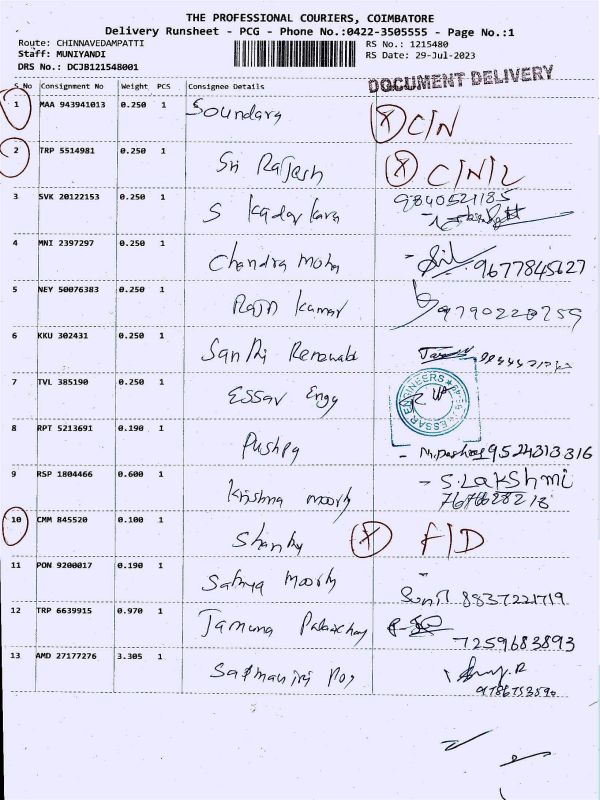 THE PROFESSIONAL COURIERS, COIMBATORE
Delivery Runsheet - PCG - Phone No.:0422-3505555 - Page No.:1
Route: CHINNAVEDAMPATTI
RS No.: 1215480
Staff: MUNIYANDI
RS Date: 29-Jul-2023
DRS No.: DCJB121548001
DOCUMENT DELIVERY
S No Consignment No Weight PCS Consignee Details
1 MAA 943941013 0.250 1 Soundara X C/N
2 TRP 5514981 0.250 1 Sri Rajesh X C/N/L
3 SVK 20122153 0.250 1 S Kadar 9840521185
4 MNI 2397297 0.250 1 Chandra Moha 9677845627
5 NEY 50076383 0.250 1 Rajn Kumar 9790220759
6 KKU 302431 0.250 1 Santhi
7 TVL 385190 0.250 1 Essar Engg
ESSAR ENGINEERS
8 RPT 5213691 0.190 1 Pushpa 9524313316
9 RSP 1804466 0.600 1 Krishna Moorth - S. LAKSHMI
7676628213
10 CMM 845520 0.100 1 X F/D
11 PON 9200017 0.190 1 Sathya Moorth Sunil 8837221719
12 TRP 6639915 0.970 1 Jamuna
7259683893
13 AMD 27177276 3.305 1